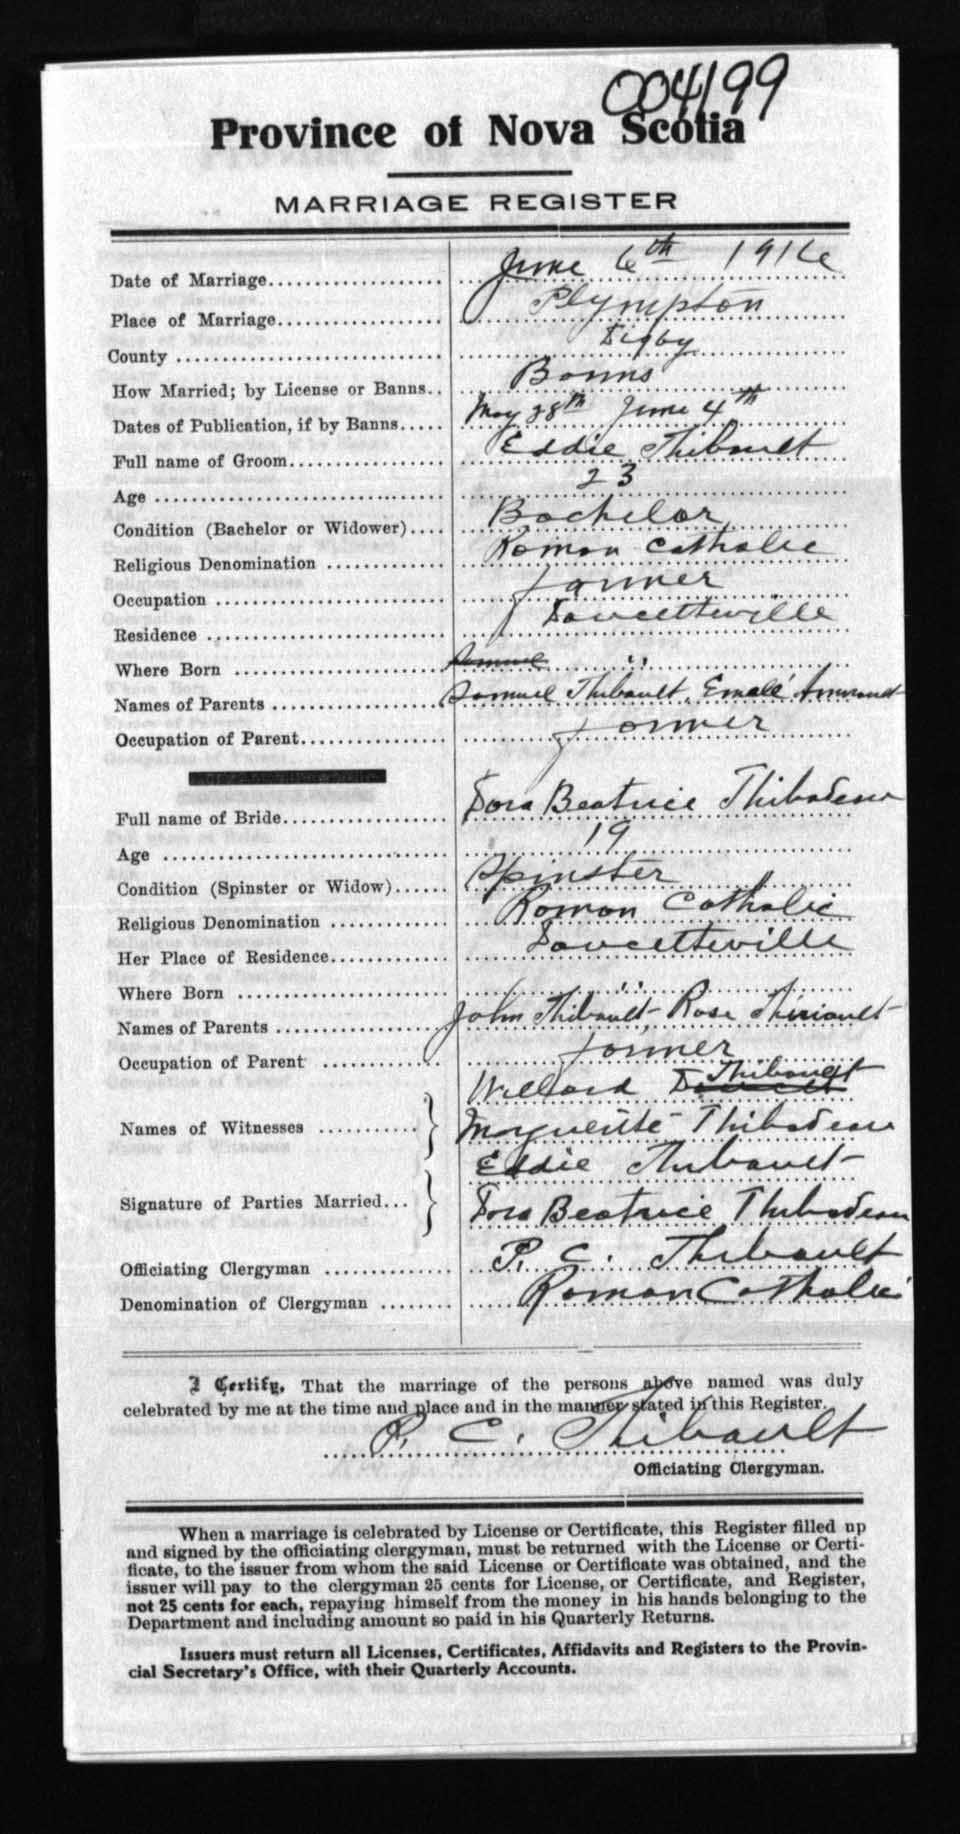 004199
Province of Nova Scotia
MARRIAGE REGISTER
Date of Marriage.................... June 6th 1916
Place of Marriage.................. Plympton
County ............................. Digby
How Married; by License or Banns.. Banns
Dates of Publication, if by Banns..... May 28th June 4th
Full name of Groom.................. Eddie Thibault
Age ................................ 23
Condition (Bachelor or Widower).... Bachelor
Religious Denomination ............. Roman Catholic
Occupation ......................... farmer
Residence .......................... Doucetteville
Where Born ......................... Samuel "
Names of Parents ................... Samuel Thibault, Emalé
Occupation of Parent................ farmer
Full name of Bride.................. Dora Beatrice Thibodeau
Age ................................ 19
Condition (Spinster or Widow)...... Spinster
Religious Denomination ............. Roman Catholic
Her Place of Residence............. Doucetteville
Where Born ......................... "
Names of Parents ................... John Thibault Rose Theriault
Occupation of Parent ............... farmer
Thibault
Willard Doucett
Names of Witnesses ............ Marguerite Thibodeau
Eddie Thibault
Signature of Parties Married... Dora Beatrice Thibodeau
Officiating Clergyman .............. P. C. Thibault
Denomination of Clergyman ........ Roman Catholic
I Certify, That the marriage of the persons above named was duly
celebrated by me at the time and place and in the manner stated in this Register.
P. C. Thibault
Officiating Clergyman.
When a marriage is celebrated by License or Certificate, this Register filled up
and signed by the officiating clergyman, must be returned with the License or Certi-
ficate, to the issuer from whom the said License or Certificate was obtained, and the
issuer will pay to the clergyman 25 cents for License, or Certificate, and Register,
not 25 cents for each, repaying himself from the money in his hands belonging to the
Department and including amount so paid in his Quarterly Returns.
Issuers must return all Licenses, Certificates, Affidavits and Registers to the Provin-
cial Secretary's Office, with their Quarterly Accounts.